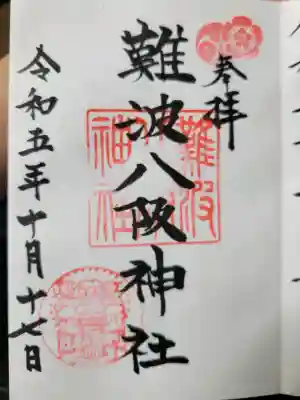 奉拝
難波八阪神社
令和五年十月十七日
難波
神社